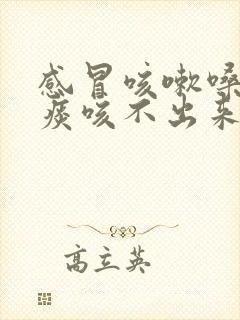 感冒咳嗽嗓
痰咳不出来
高立英